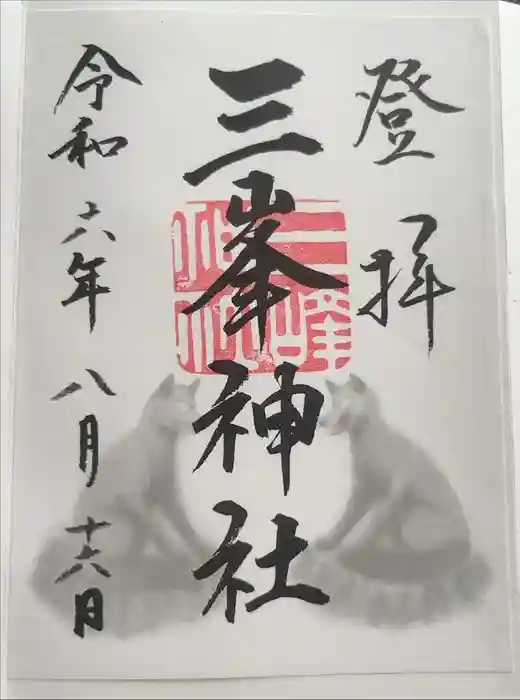 登拝
三峯神社
令和六年八月十六日